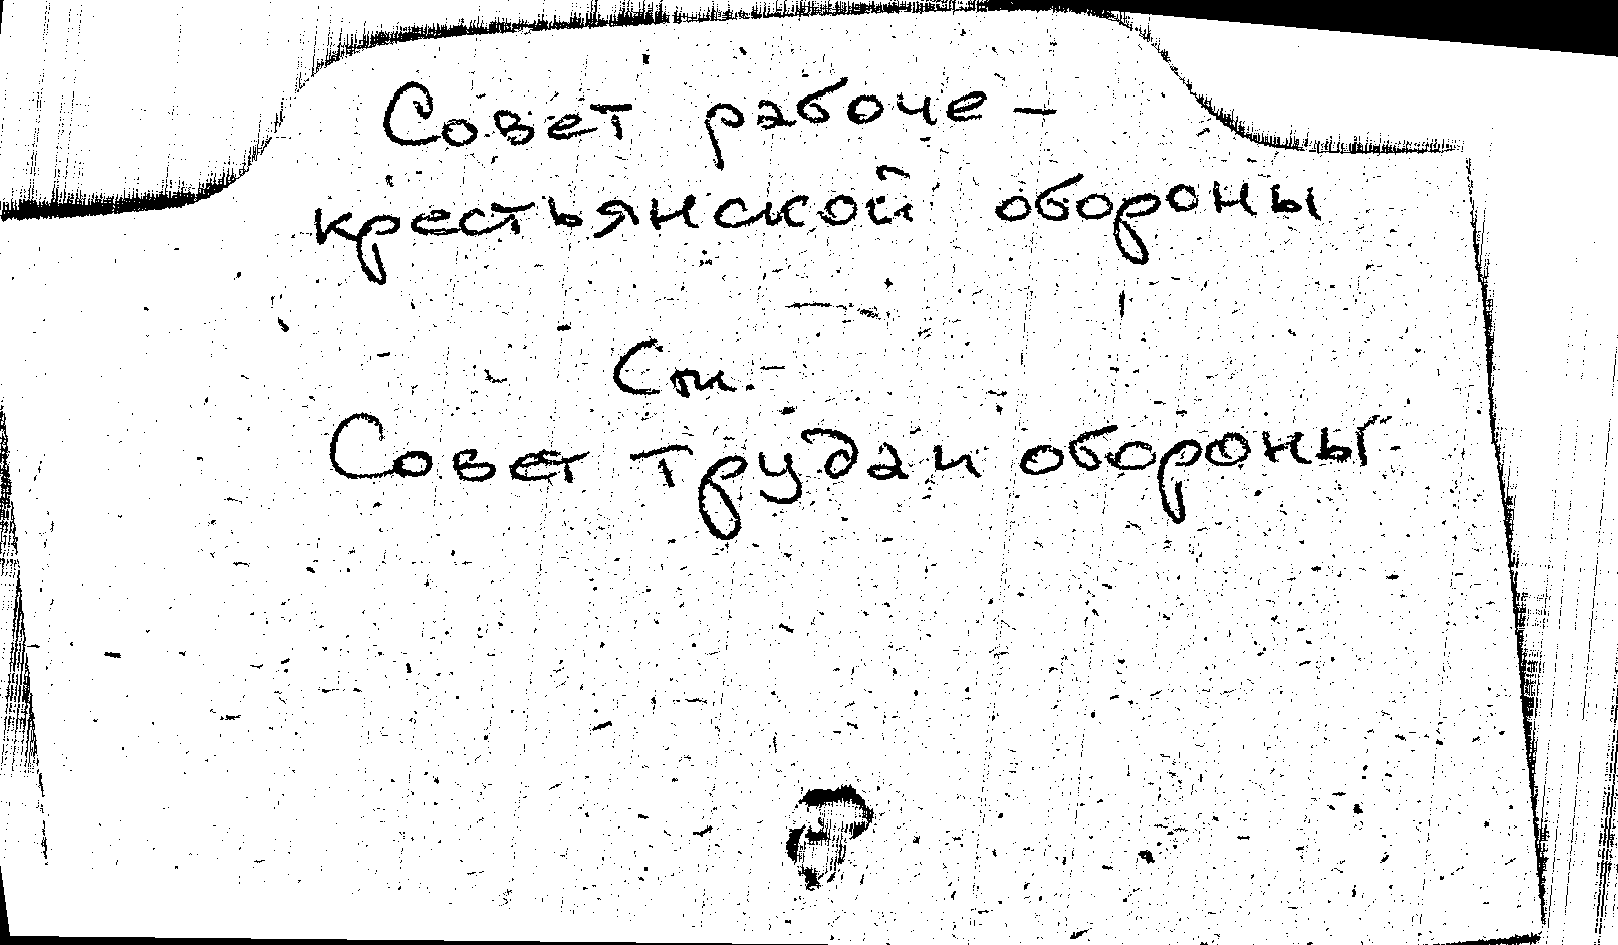 Совет рабоче-
крестьянской обороны
См.
Совет труда и обороны